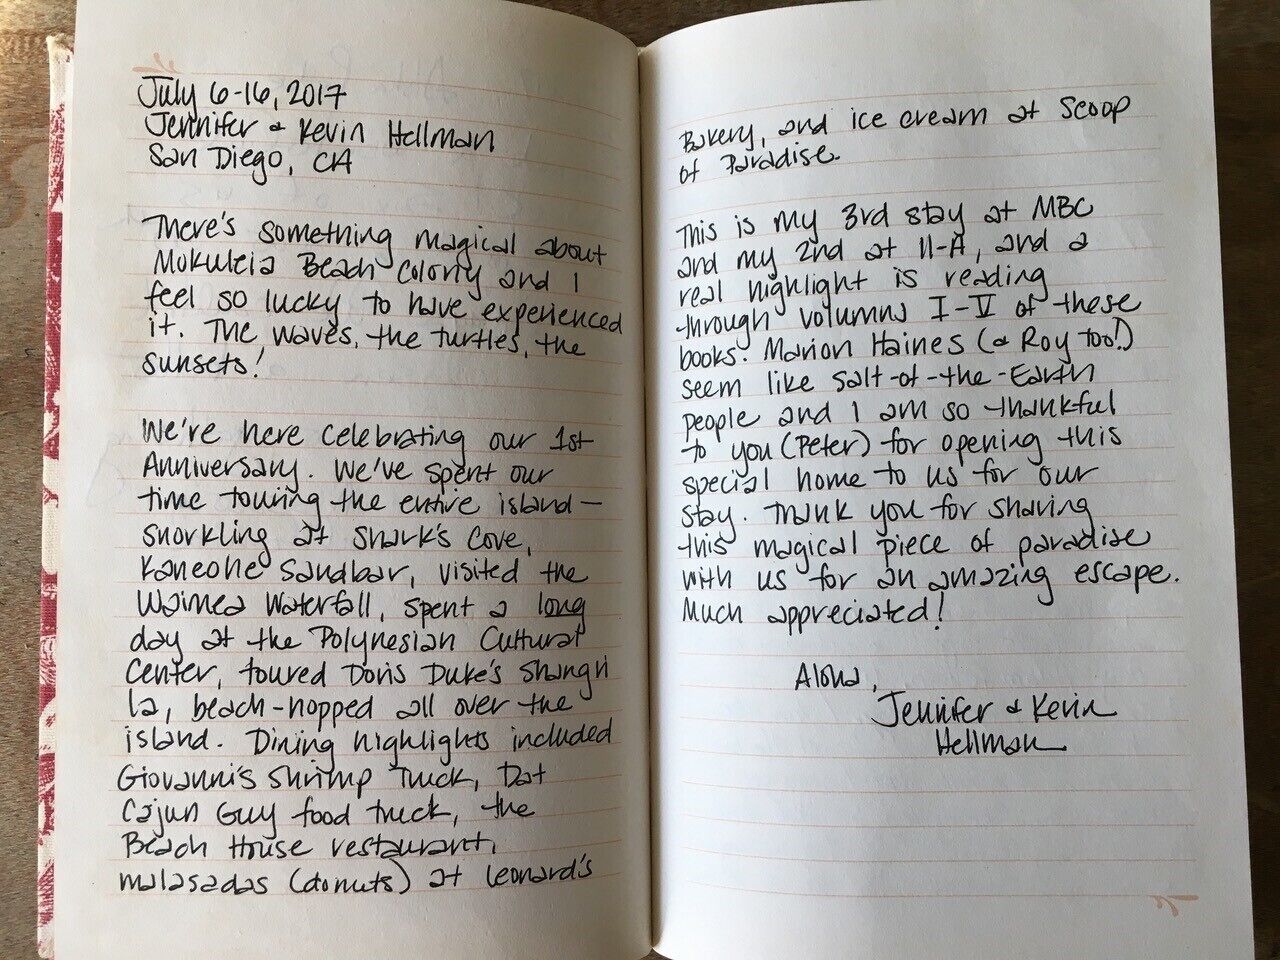 July 6-16, 2017
Jennifer & Kevin Hellman
San Diego, CA
There's something magical about
Mokuleia Beach Colony and I
feel so lucky to have experienced
it. The waves, the turtles, the
sunsets!
We're here celebrating our 1st
Anniversary. We've spent our
time touring the entire island—
snorkling at Shark's Cove,
Kaneohe Sandbar, visited the
Waimea Waterfall, spent a long
day at the Polynesian Cultural
Center, toured Doris Duke's Shangri
La, beach-hopped all over the
island. Dining highlights included
Giovanni's Shrimp Truck, Dat
Cajun Guy food truck, the
Beach House restaurant,
malasadas (donuts) at Leonard's
Bakery, and ice cream at Scoop
of Paradise.
This is my 3rd stay at MBC
and my 2nd at 11-A, and a
real highlight is reading
through volumns I-V of these
books. Marion Haines (& Roy too!)
seem like Salt-of-the-Earth
people and I am so thankful
to you (Peter) for opening this
special home to us for our
stay. Thank you for sharing
this magical piece of paradise
with us for an amazing escape.
Much appreciated!
Aloha,
Jennifer & Kevin
Hellman